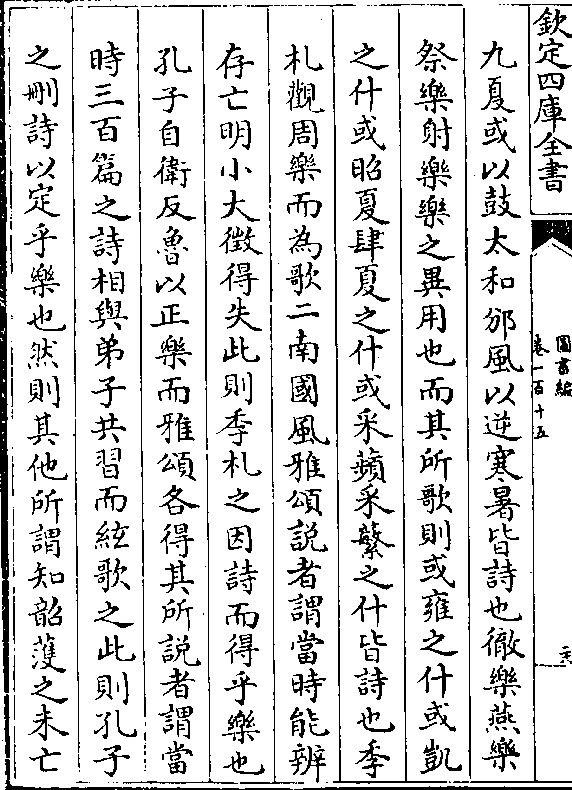 欽定四庫全書
圖書編
卷一百十五
九夏或以鼓太和邠風以逆寒暑皆詩也徹樂燕樂
祭樂射樂樂之異用也而其所歌則或雍之什或凱
之什或昭夏肆夏之什或采蘋采蘩之什皆詩也季
札觀周樂而為歌二南國風雅頌説者謂當時能辨
存亡明小大徴得失此則季札之因詩而得乎樂也
孔子自衛反魯以正樂而雅頌各得其所説者謂當
時三百篇之詩相與弟子共習而絃歌之此則孔子
之刪詩以定乎樂也然則其他所謂知韶頀之未亡